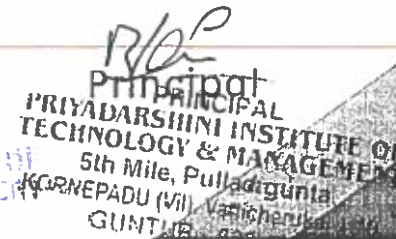 Principal
PRINCIPAL
PRIYADARSHINI INSTITUTE OF
TECHNOLOGY & MANAGEMENT
5th Mile, Pulladigunta
KORNEPADU (Vil)
GUNTUR